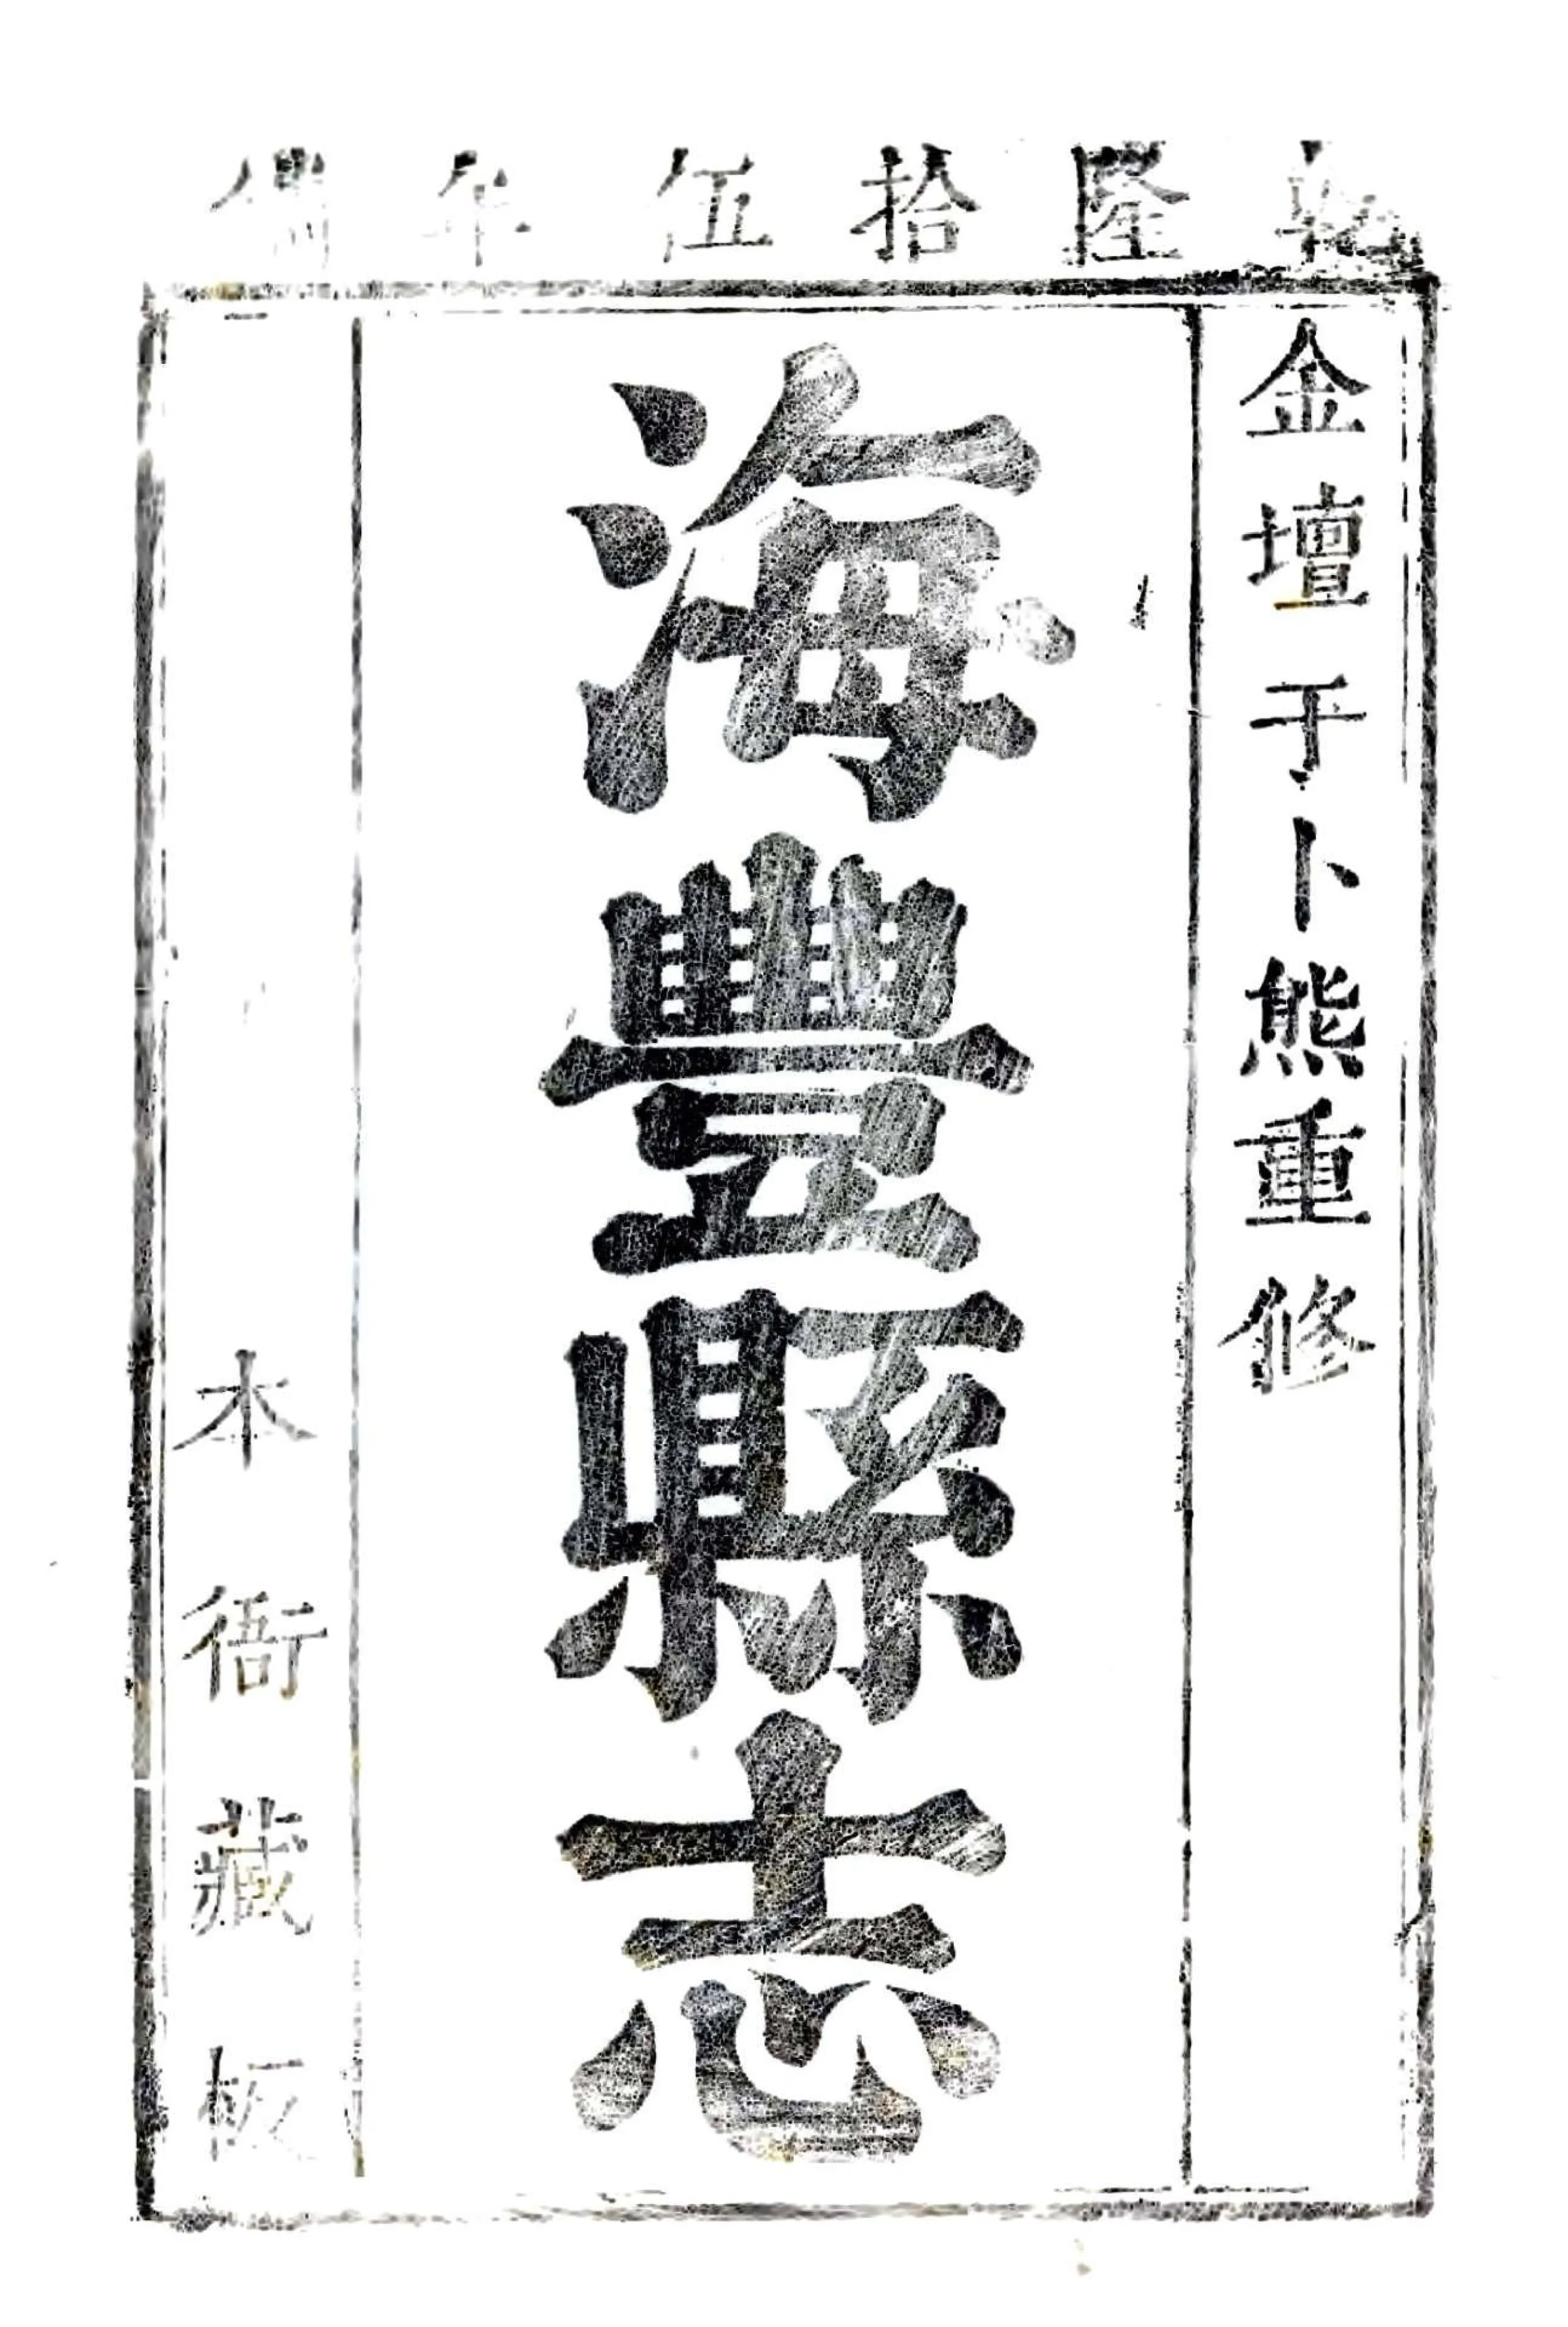 乾隆拾伍年
金壇于卜熊重修
海豐縣志
本衙藏板